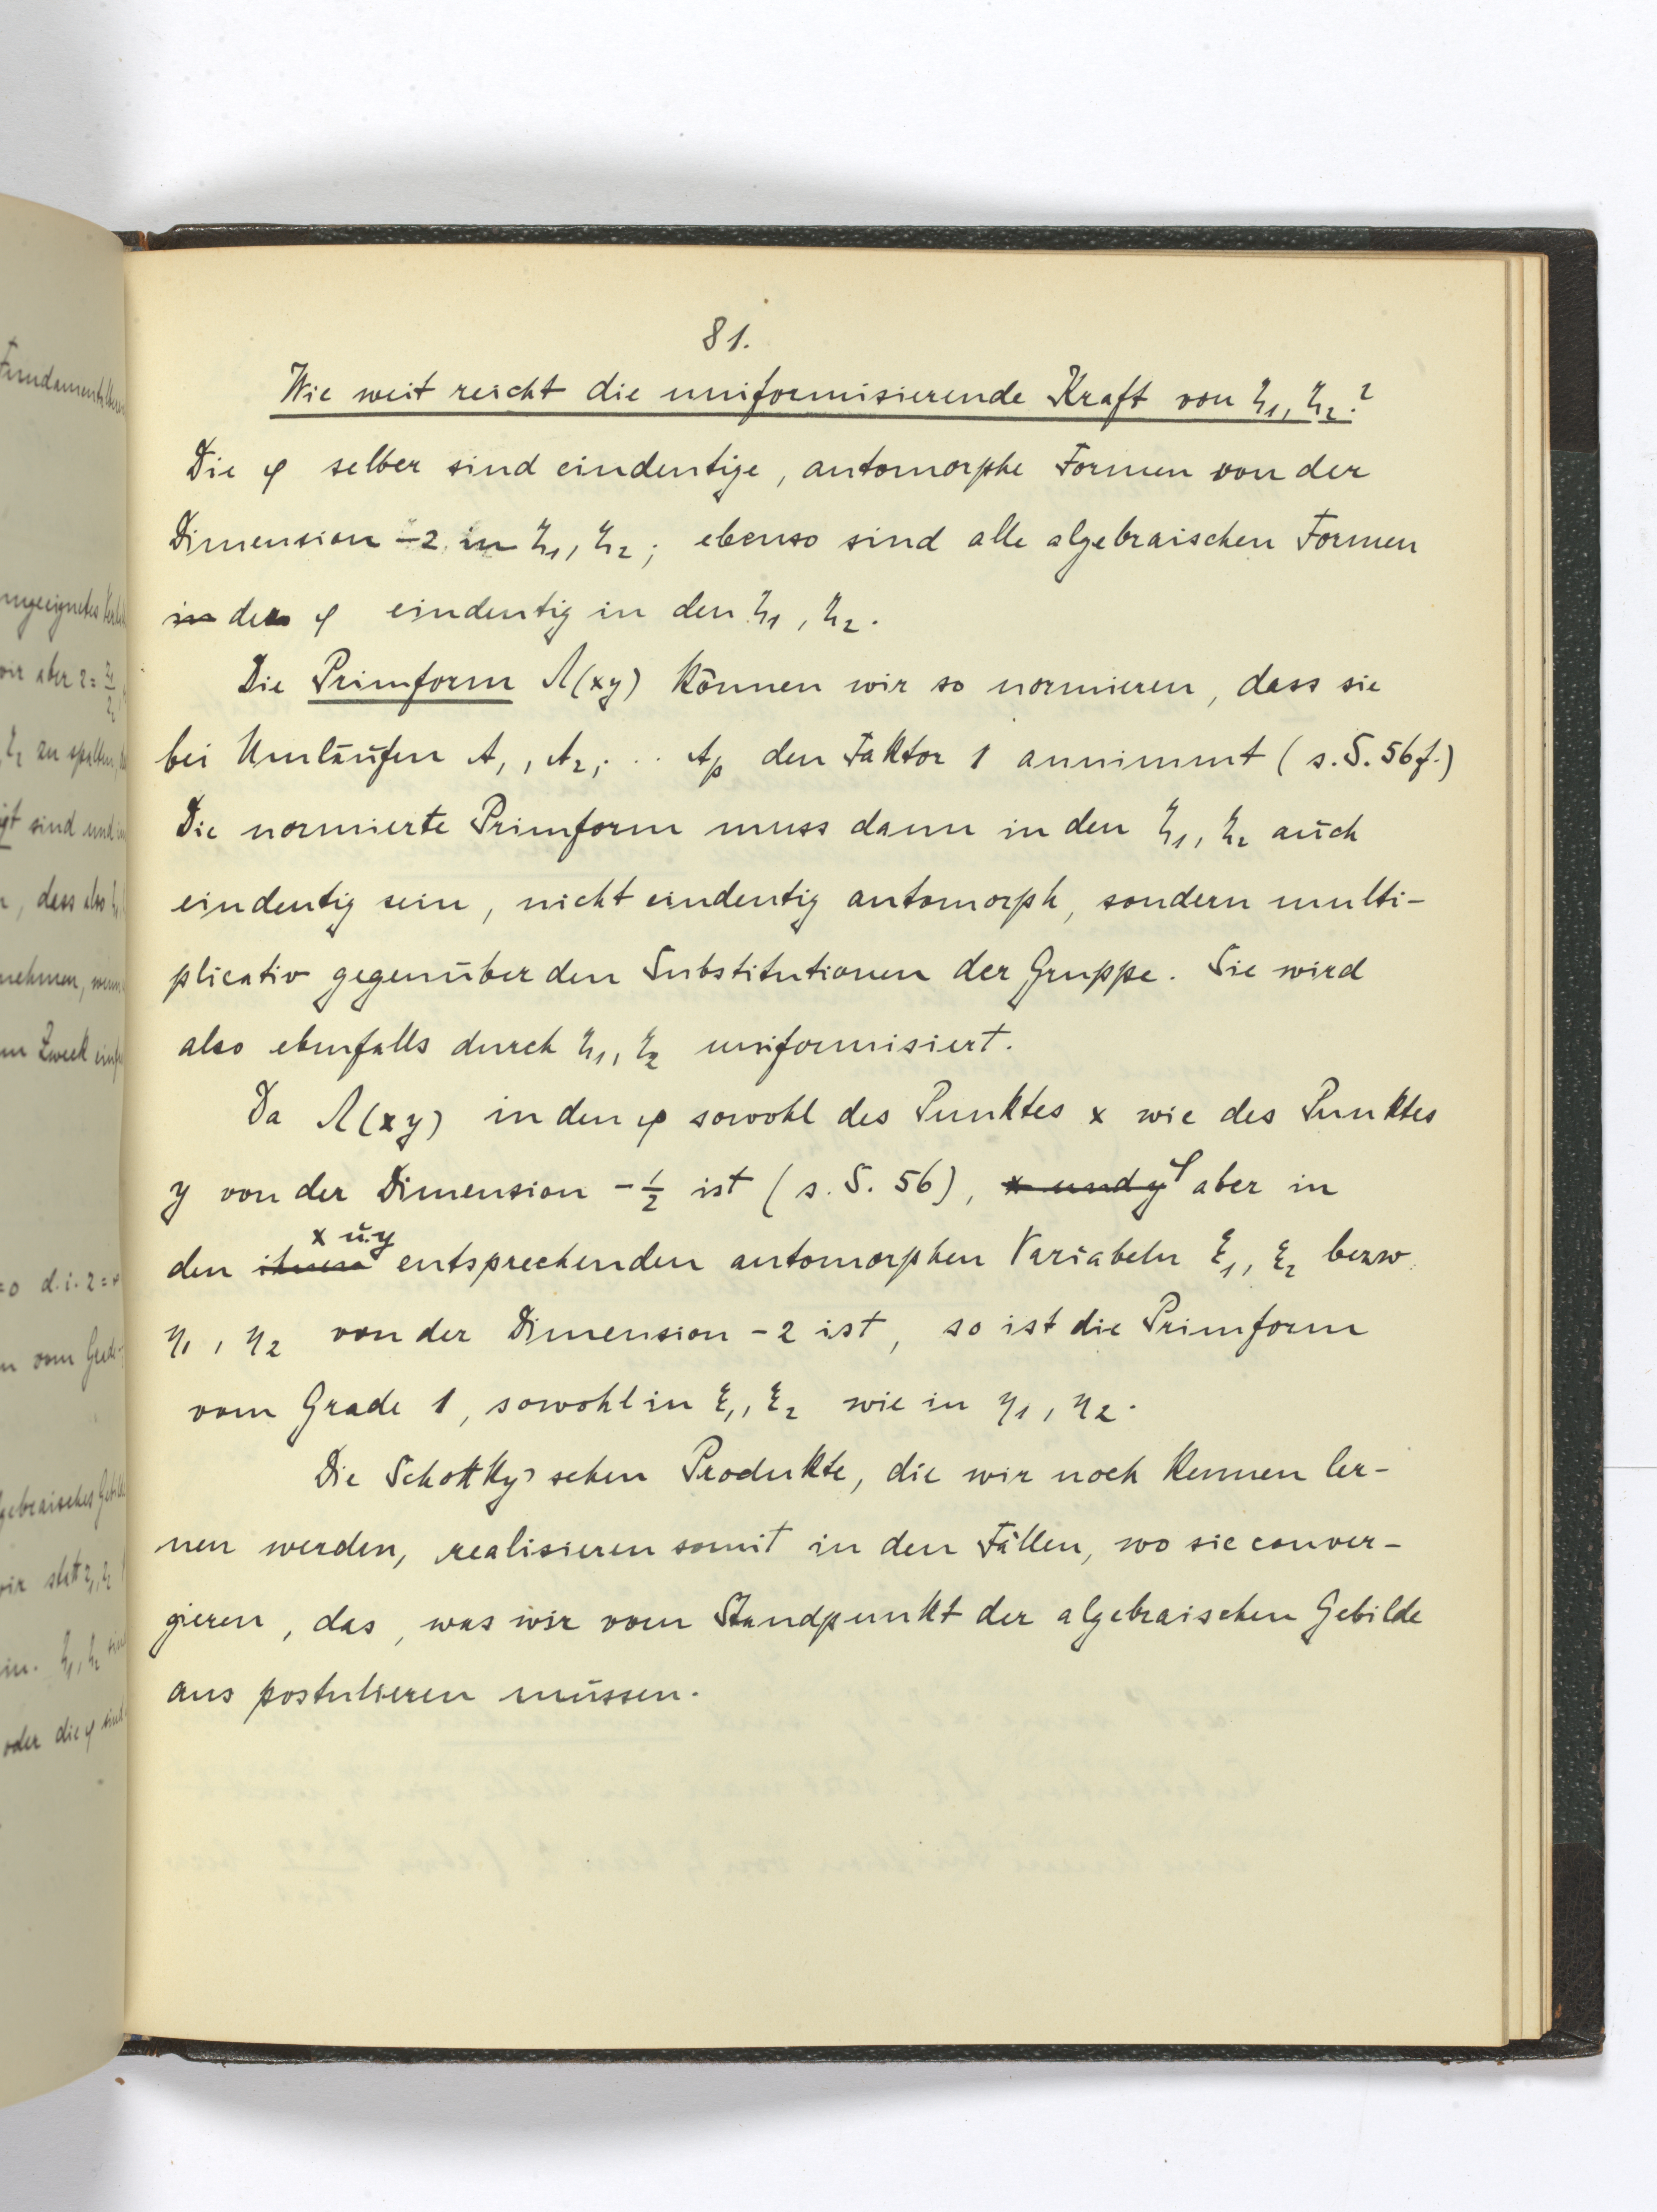 81.
Wie weit reicht die uniformisierende Kraft von ζ₁, ζ₂?
Die φ selber sind eindeutige, automorphe Formen von der
Dimension -2 in ζ₁, ζ₂; ebenso sind alle algebraischen Formen
in der φ eindeutig in den ζ₁, ζ₂.
Die Primform Λ(xy) können wir so normieren, dass sie
bei Umläufen A₁, A₂, .. Aₚ den Faktor 1 annimmt (s. S. 56f.)
Die normierte Primform muss dann in den ζ₁, ζ₂ auch
eindeutig sein, nicht eindeutig automorph, sondern multi-
plicativ gegenüber den Substitutionen der Gruppe. Sie wird
also ebenfalls durch ζ₁, ζ₂ uniformisiert.
Da Λ(xy) in den φ sowohl des Punktes x wie des Punktes
y von der Dimension -½ ist (s. S. 56), x und y φ aber in
den ihnen x u. y entsprechenden automorphen Variabeln ξ₁, ξ₂ bezw.
η₁, η₂ von der Dimension -2 ist, so ist die Primform
vom Grade 1, sowohl in ξ₁, ξ₂ wie in η₁, η₂.
Die Schottky'schen Produkte, die wir noch kennen ler-
nen werden, realisieren somit in den Fällen, wo sie conver-
gieren, das, was wir vom Standpunkt der algebraischen Gebilde
aus postulieren müssen.